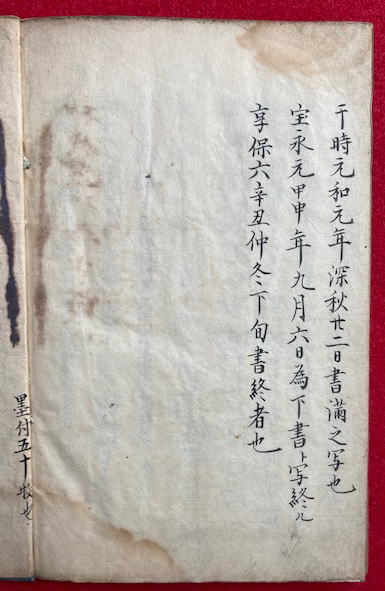 于時元和元年深秋廿二日書満之写也
宝永元甲申年九月六日為下書ト写終ル
享保六辛丑仲冬下旬書終者也
墨付五十枚也